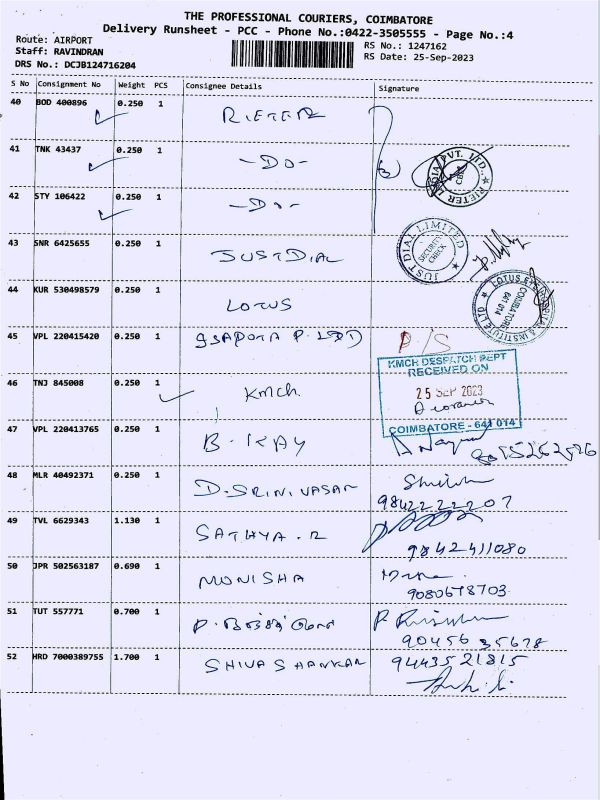 THE PROFESSIONAL COURIERS, COIMBATORE
Delivery Runsheet - PCC - Phone No.:0422-3505555 - Page No.:4
Route: AIRPORT
Staff: RAVINDRAN
DRS No.: DCJB124716204
RS No.: 1247162
RS Date: 25-Sep-2023
S No Consignment No Weight PCS Consignee Details Signature
40 BOD 400896 0.250 1 RIETER
41 TNK 43437 0.250 1 -DO-
(3)
RIETER INDIA PVT. LTD.
42 STY 106422 0.250 1 -DO-
43 SNR 6425655 0.250 1 JUSTDIAL
JUST DIAL LIMITED
SECURITY CHECK
44 KUR 530498579 0.250 1 LOTUS
LOTUS EYE HOSPITAL & INSTITUTE LTD
COIMBATORE
641 014
45 VPL 220415420 0.250 1 P. LTD P/S
46 TNJ 845008 0.250 1 KMCH
KMCH DESPATCH DEPT
RECEIVED ON
25 SEP 2023
COIMBATORE - 641 014
47 VPL 220413765 0.250 1 B. KAY
48 MLR 40492371 0.250 1 D. SRINIVASAN
9842222207
49 TVL 6629343 1.130 1 SATHYA. R
9842411080
50 JPR 502563187 0.690 1 MONISHA
9080678703
51 TUT 557771 0.700 1 P.
90456 35678
52 HRD 7000389755 1.700 1 SHIVASHANKAR 9443521815